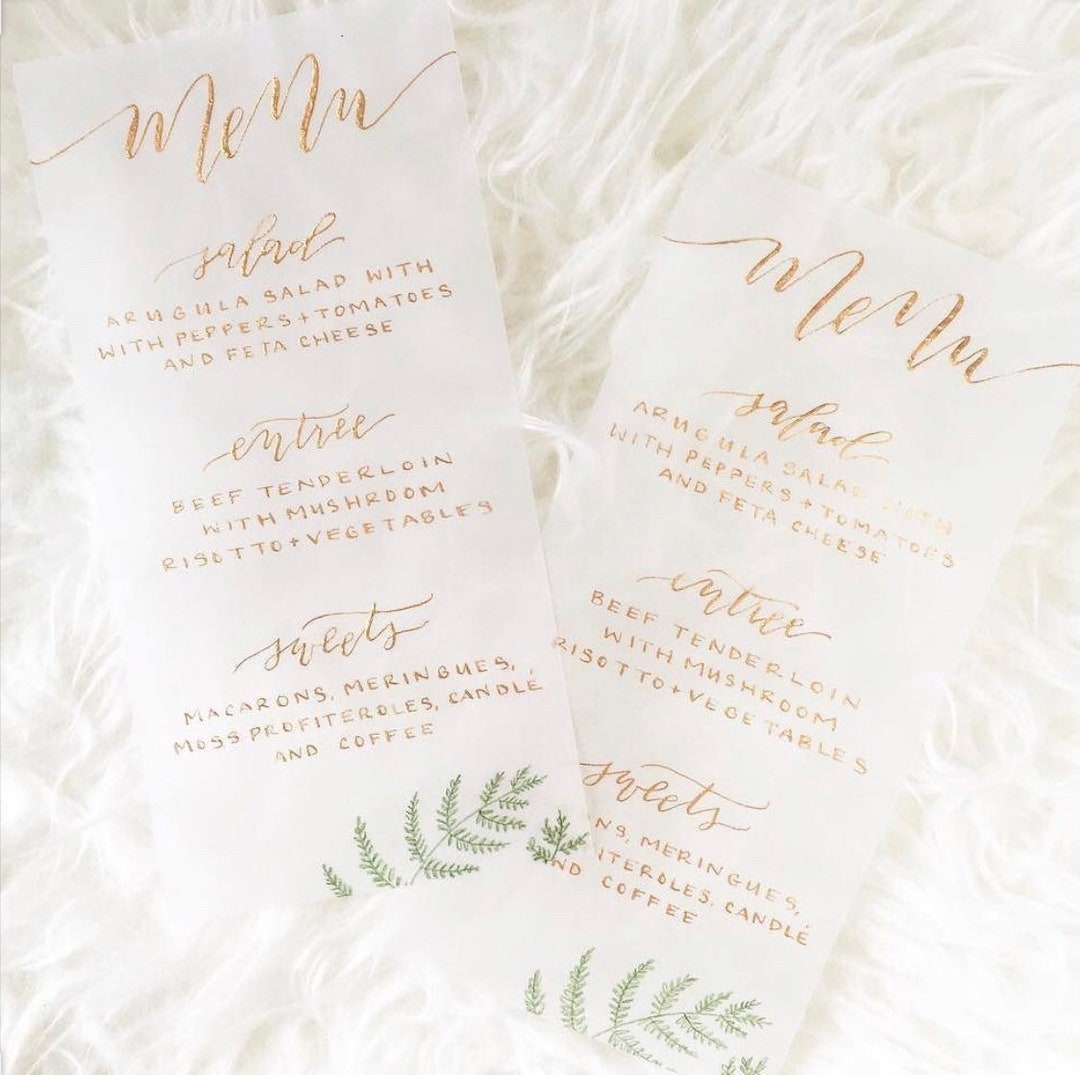 Menu
salad
ARUGULA SALAD WITH
WITH PEPPERS + TOMATOES
AND FETA CHEESE
entree
BEEF TENDERLOIN
WITH MUSHROOM
RISOTTO + VEGETABLES
sweets
MACARONS, MERINGUES,
MOSS PROFITEROLES, CANDLÉ
AND COFFEE
Menu
salad
ARUGULA SALAD WITH
WITH PEPPERS + TOMATOES
AND FETA CHEESE
entree
BEEF TENDERLOIN
WITH MUSHROOM
RISOTTO + VEGETABLES
sweets
NS, MERINGUES,
ITEROLES, CANDLÉ
ND COFFEE